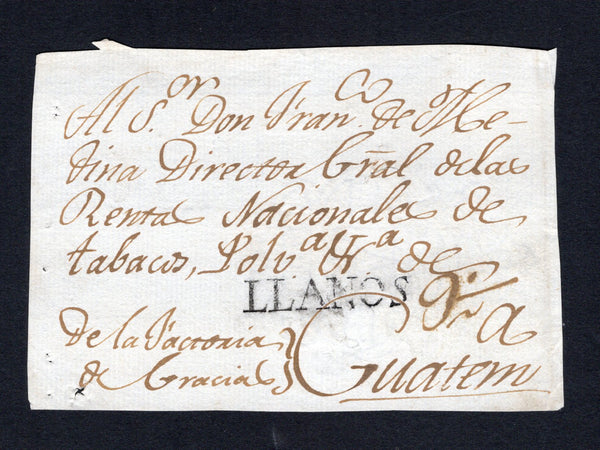 Al S.or Don Fran.co de Me-
dina Director Gral de las
Rentas Nacionales de
tabacos, Polv.a &.a de
LLANOS
De la Factoria
de Gracias
Guatem.a